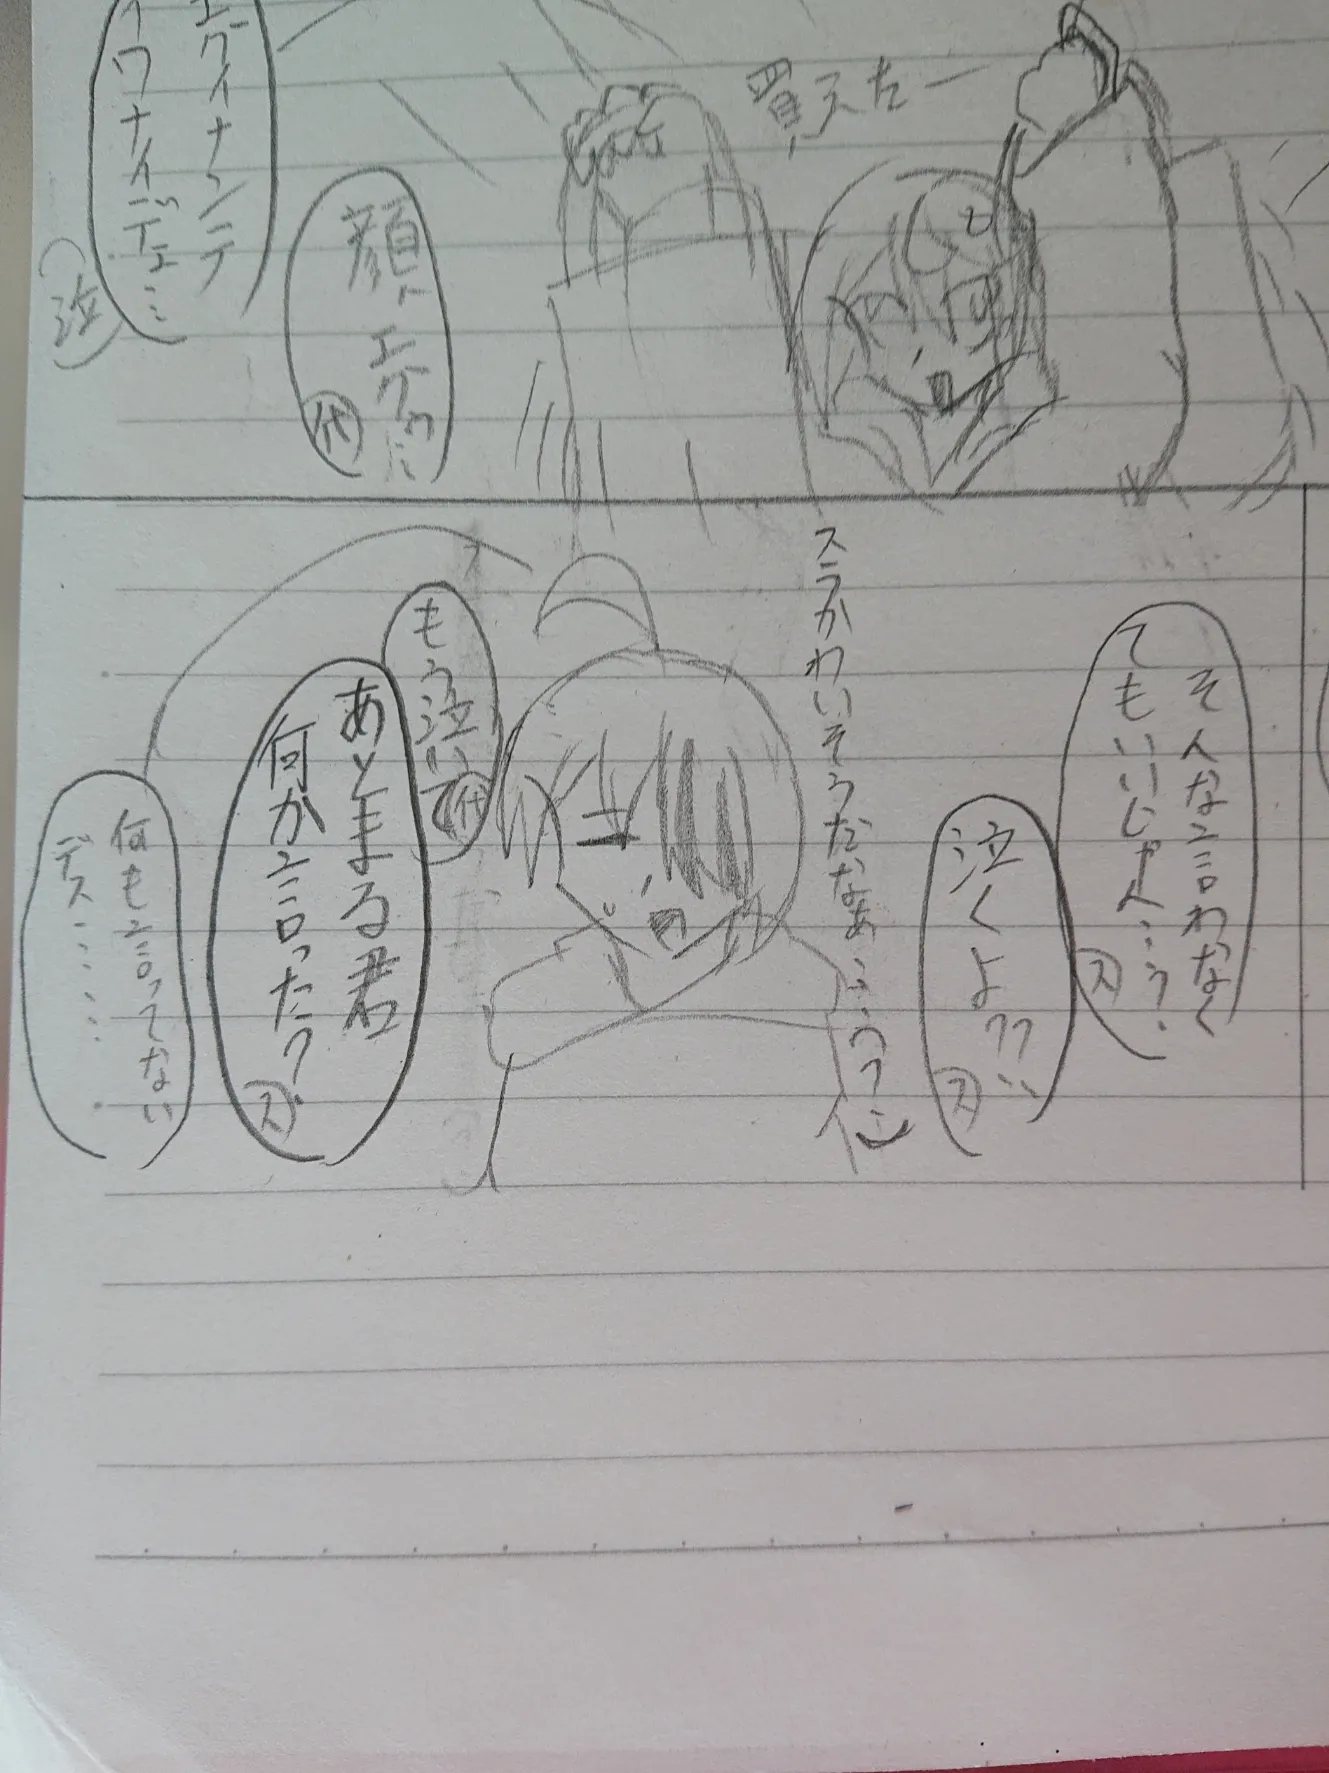 買えたー
顔エグっ…
代
エグイナンテ
イワナイデェ…
泣
そんな言わなく
てもいいじゃん…う?
ス
泣くよ??…
ス
スラかわいそうだなぁ
もう泣いて
代
あとまる君
何か言った?
ス
何も言ってない
デス……